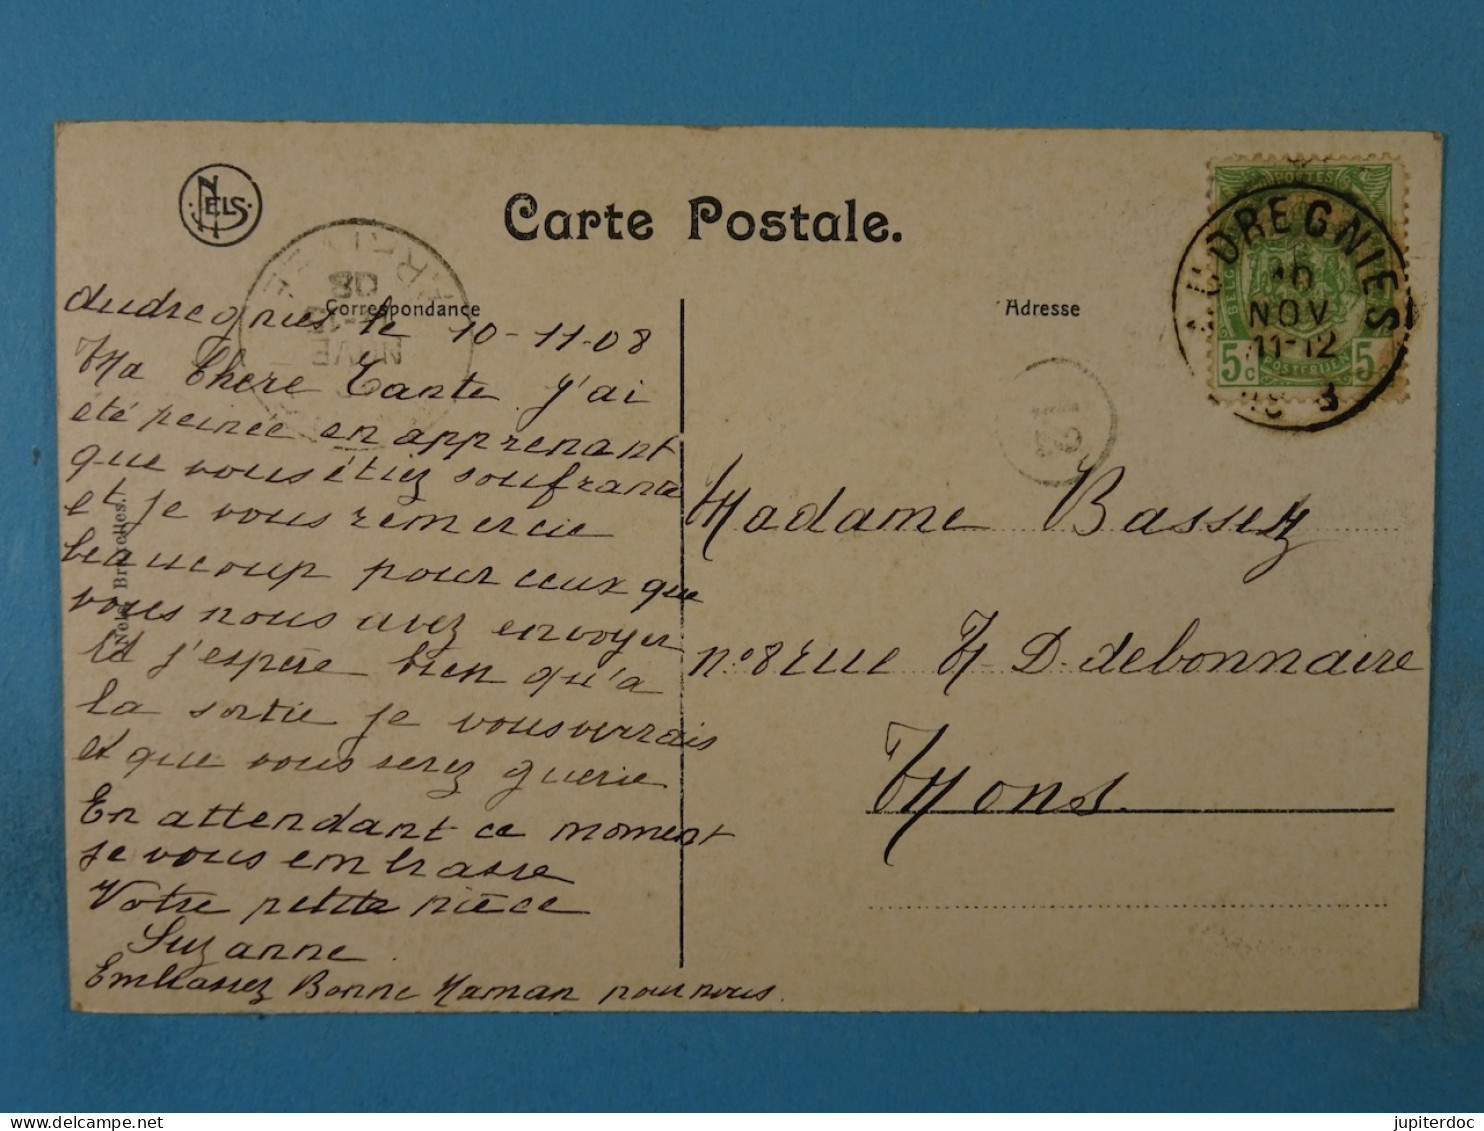 NELS
Carte Postale.
Correspondance
Adresse
AUDREGNIES
10
NOV
11-12
5c 5c
08
NOVE
Audregnies le 10-11-08
Ma Chere Tante J'ai
été peinée en apprenant
que vous étiez soufrante
et je vous remercie
beaucoup pour ceux que
vous nous avez envoyer
Et j'espère bien qu'a
la sortie je vous verrais
et que vous serez guerie
En attendant ce moment
je vous embrasse
Votre petite nièce
Suzanne.
Embrassez Bonne Maman pour nous.
Nels, Bruxelles.
Madame Bassez
n° 8 rue H D. debonnaire
Mons.
jupiterdoc